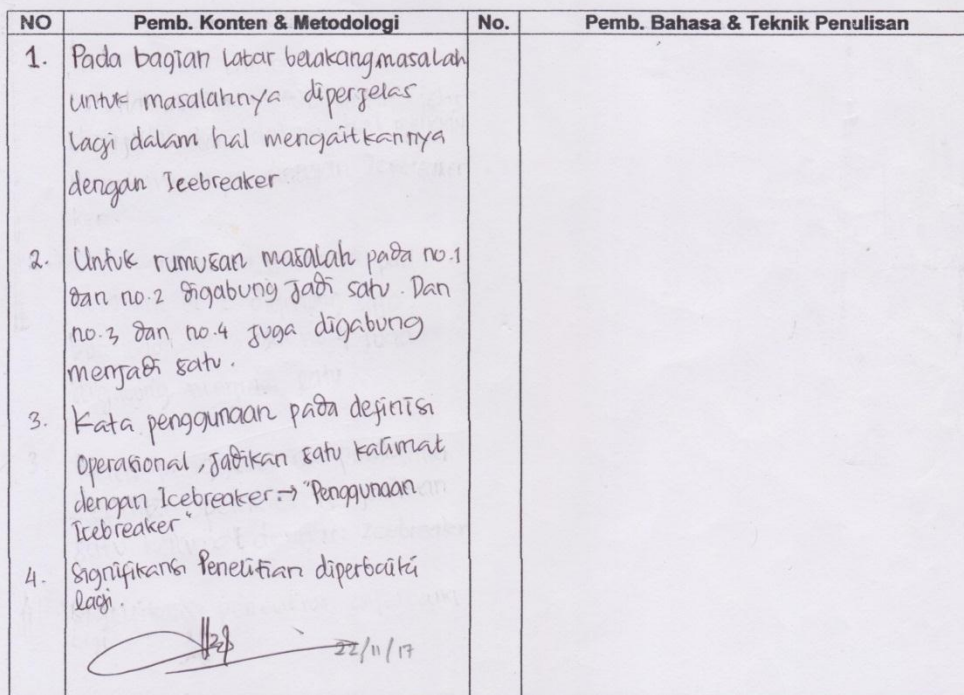 NO Pemb. Konten & Metodologi No. Pemb. Bahasa & Teknik Penulisan
1. Pada bagian Latar belakang masalah
untuk masalahnya diperjelas
lagi dalam hal mengaitkannya
dengan Icebreaker.
2. Untuk rumusan masalah pada no.1
dan no.2 digabung jadi satu. Dan
no.3 dan no.4 juga digabung
menjadi satu.
3. Kata penggunaan pada definisi
Operasional, jadikan satu kalimat
dengan Icebreaker → "Penggunaan
Icebreaker"
4. Signifikansi Penelitian diperbaiki
lagi.
22/11/17